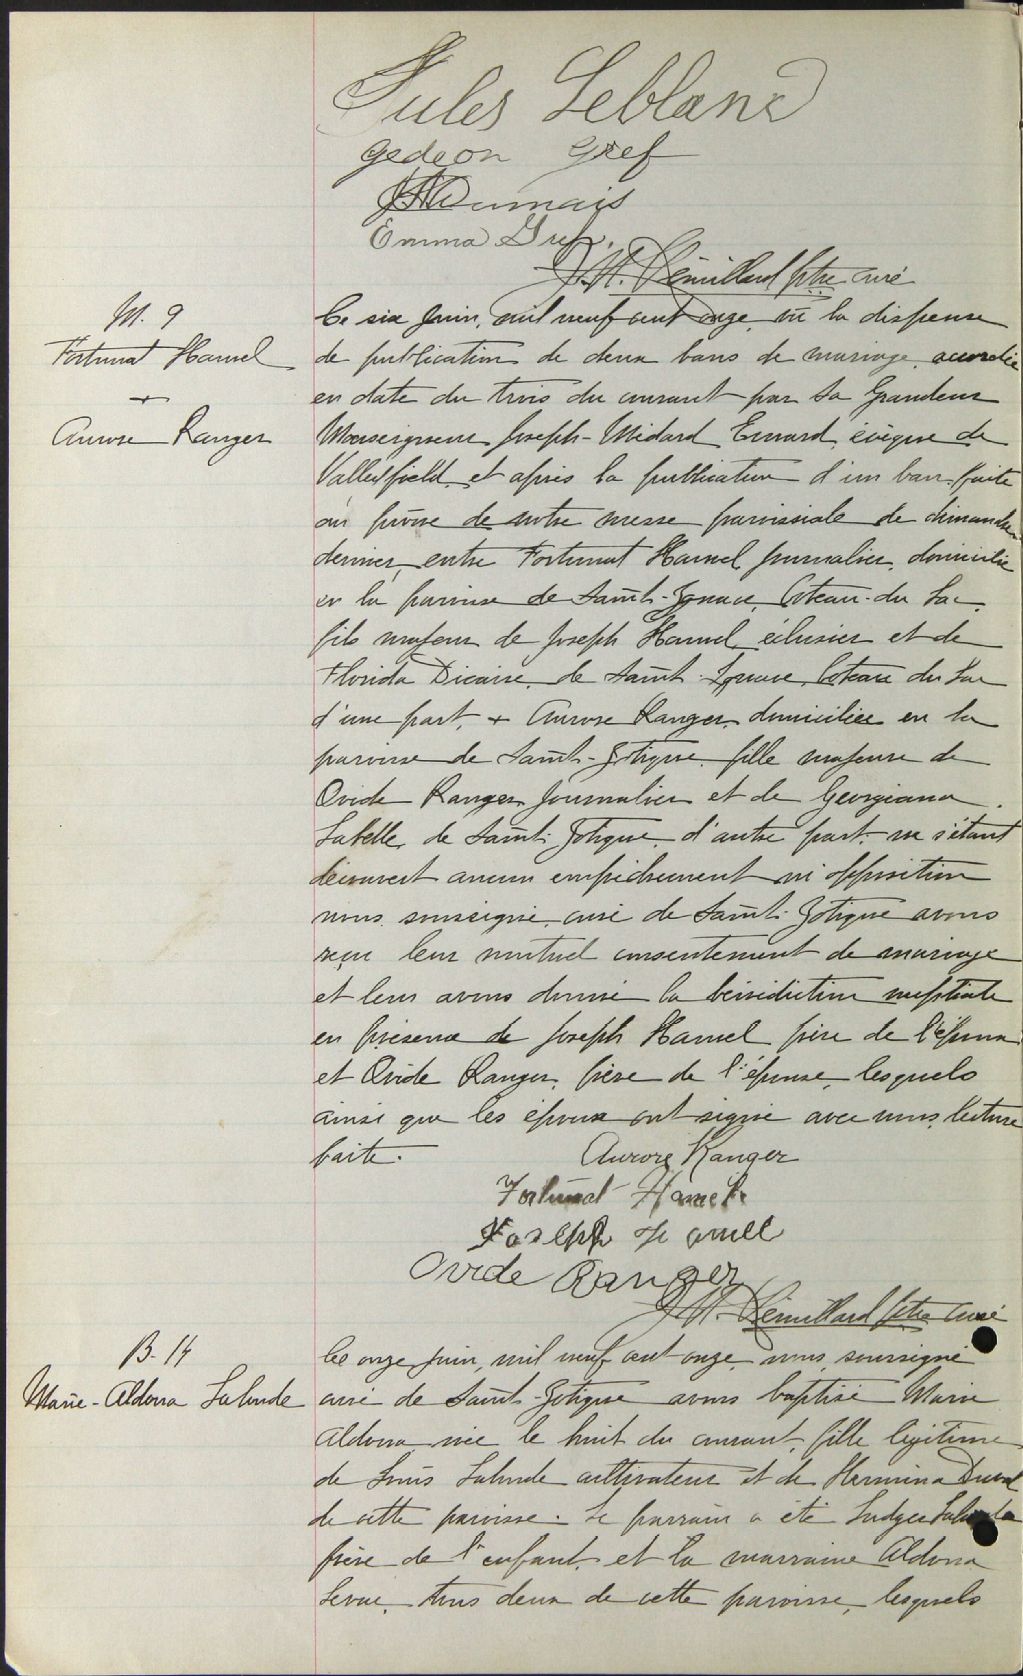 Jules Leblanc
Gedeon Gref
Dumais
Emma Gref.
J. M. Rémillard ptre curé
M. 9
Fortunat Hamel
+
Aurore Ranger
Ce six Juin, mil neuf cent onze, vu la dispense
de publication de deux bans de mariage, accordée
en date du trois du courant par Sa Grandeur
Monseigneur Joseph-Médard Emard, évêque de
Valleyfield, et après la publication d'un ban, faite
au prône de notre messe paroissiale de dimanche
dernier, entre Fortunat Hamel journalier, domicilié
en la paroisse de Saint-Ignace, Coteau-du Lac,
fils majeur de Joseph Hamel, éclusier et de
Florida Dicaire, de Saint-Ignace, Coteau du Lac
d'une part, + Aurore Ranger, domiciliée en la
paroisse de Saint-Zotique, fille majeure de
Ovide Ranger Journalier et de Georgiana
Labelle, de Saint-Zotique, d'autre part, ne s'étant
découvert aucun empêchement ni opposition
nous, soussigné, curé de Saint-Zotique avons
reçu leur mutuel consentement de mariage
et leur avons donné la bénédiction nuptiale
en présence de Joseph Hamel père de l'époux
et Ovide Ranger, père de l'épouse, lesquels
ainsi que les époux ont signé avec nous, lecture
faite.
Aurore Ranger
Fortunat Hamel
Joseph Hamell
Ovide Ranger
J. M. Rémillard ptre curé
B. 14
Marie-Aldona Lalonde
Ce onze juin, mil neuf cent onze, nous, soussigné
curé de Saint-Zotique avons baptisé Marie
Aldona, née le huit du courant, fille légitime
de Louis Lalonde cultivateur et de Hermina Duval
de cette paroisse. Le parrain a été Ludger Lalonde
frère de l'enfant, et la marraine Aldona
Levac, tous deux de cette paroisse, lesquels